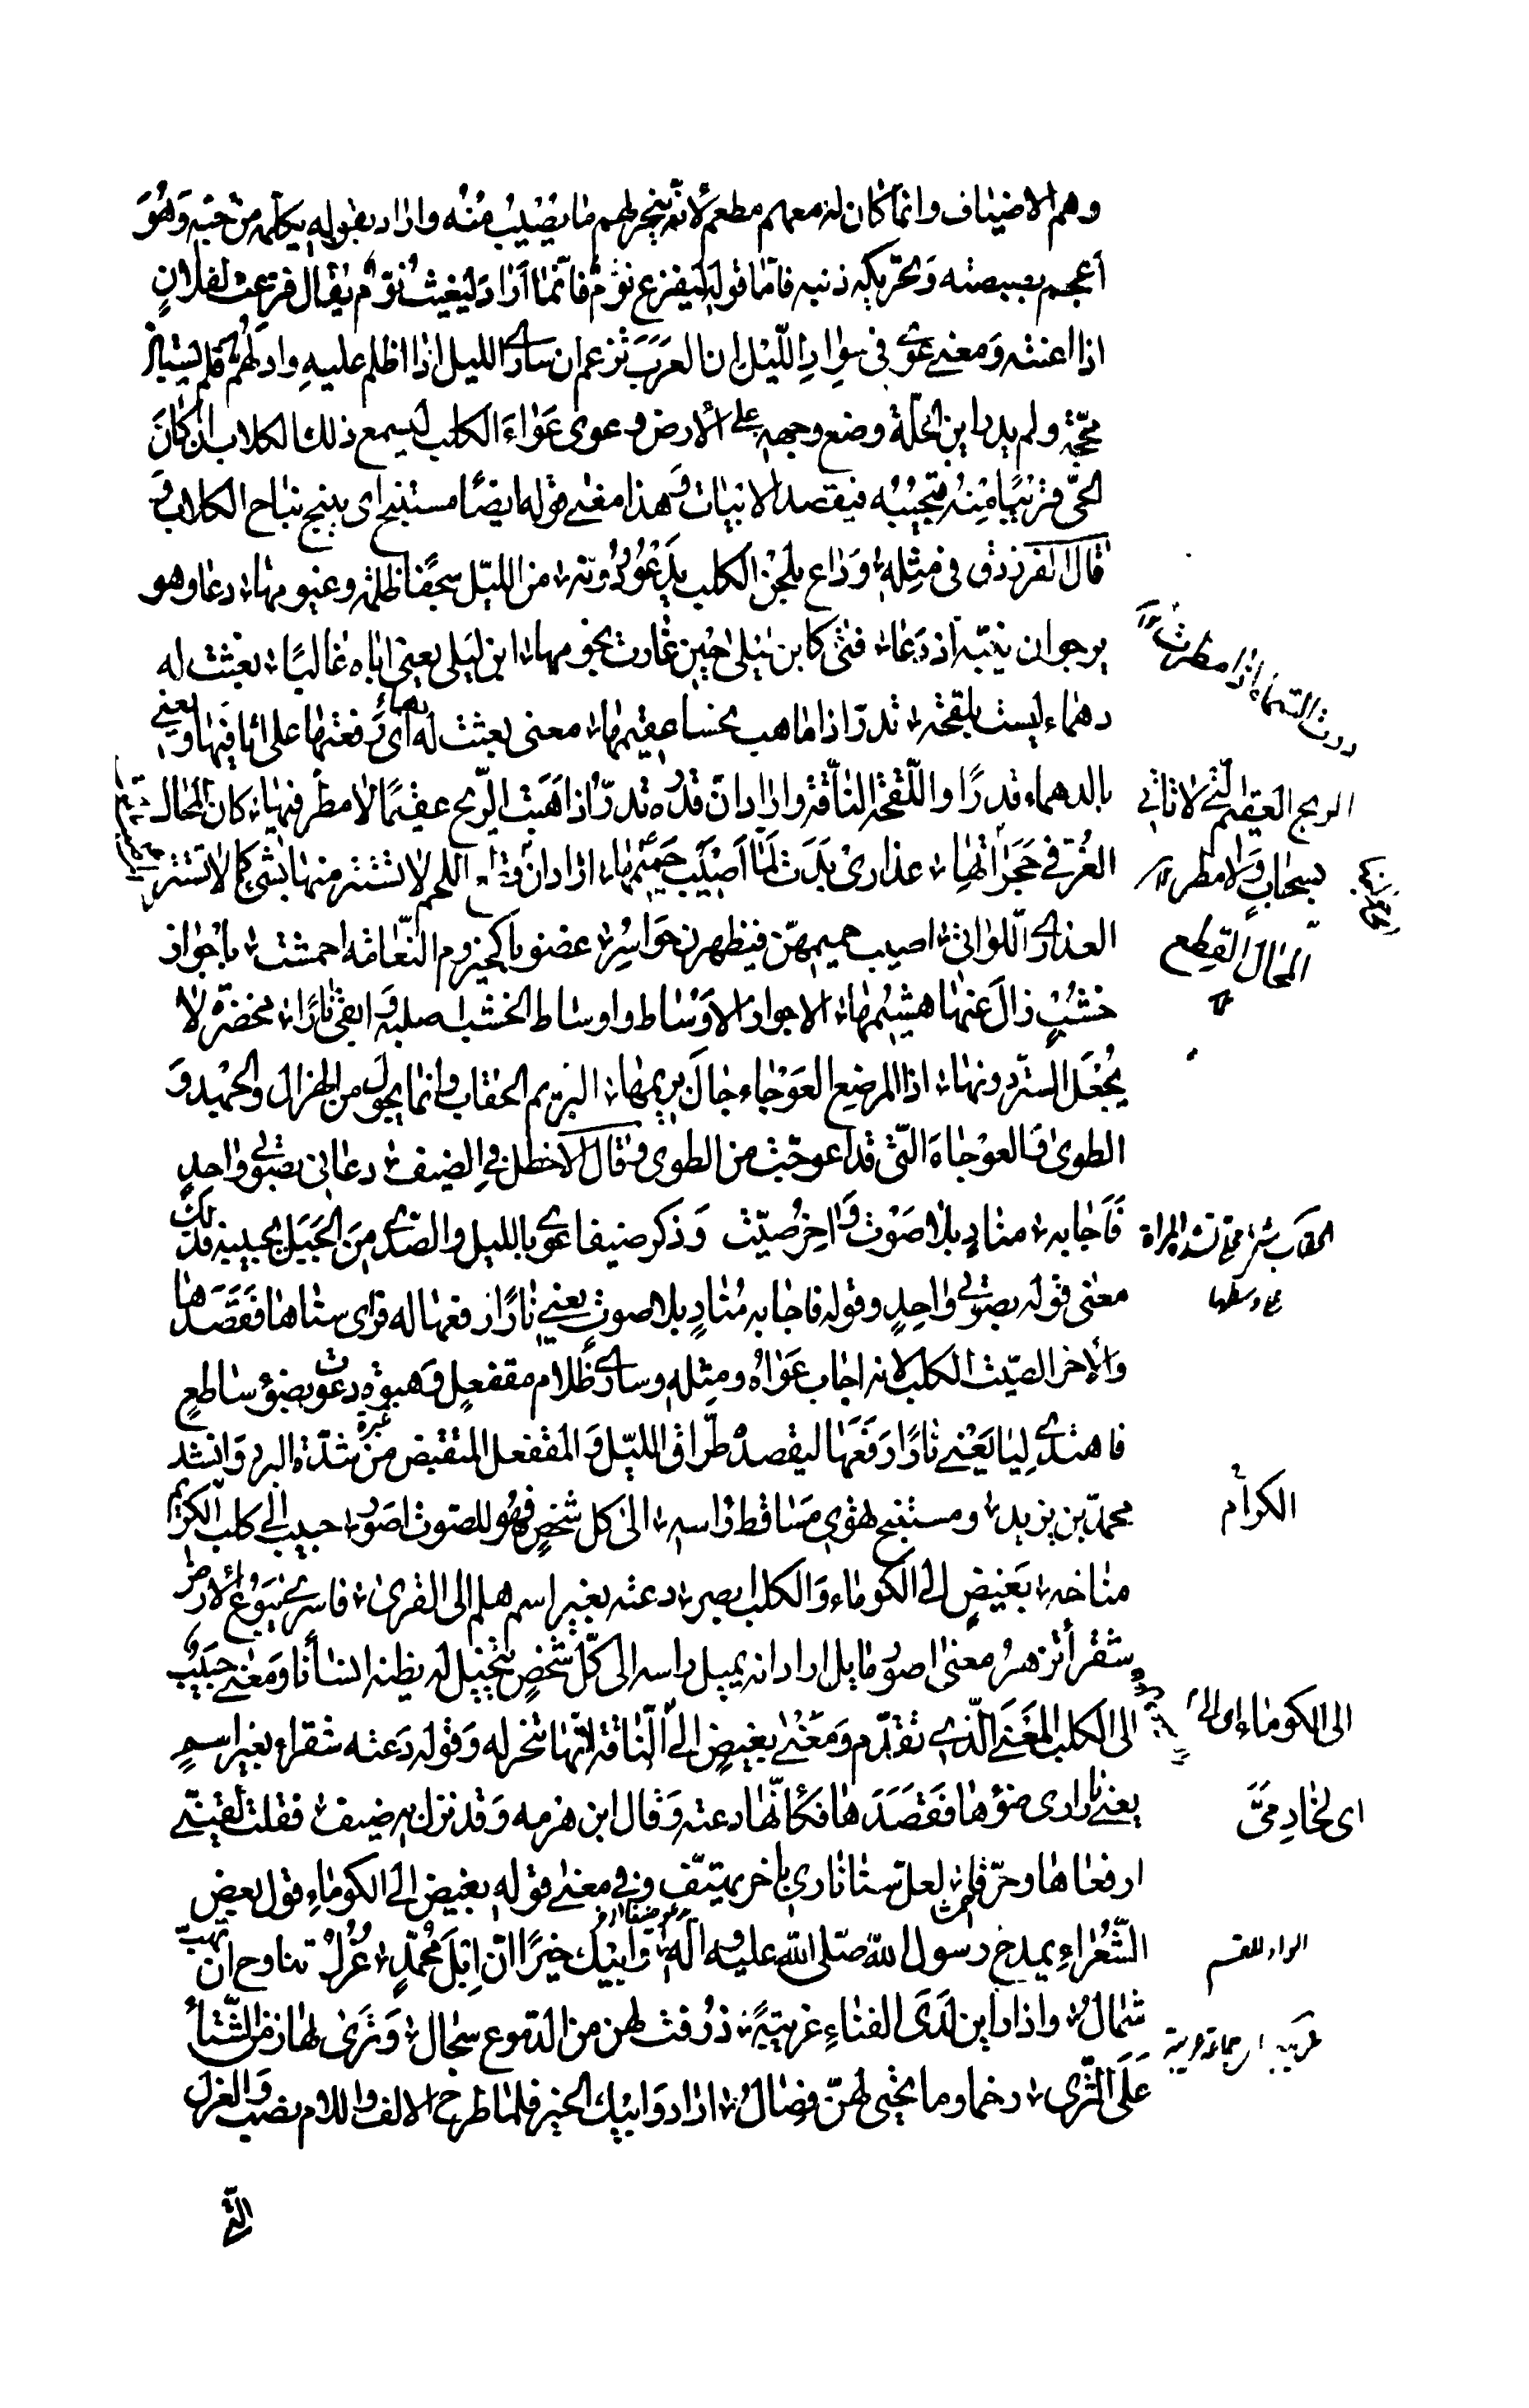 وهم الاضياف وانما كان له معهم مطعم لانه ينجر لهم ما يصيب منه واراد بقوله يكلمه من حبه وهو
اعجم بصبصته وتحريكه ذنبه فاما قوله ليفزع نوّم فانما اراد ليغيث نوّم يقال فزعت لفلان
اذا اغثته ومعنى عوى في سواد الليل ان العرب تزعم ان سارى الليل اذا اظلم عليه وادلهم فلم يستبن
محجة ولم يدر اين الحلّة وضع وجهه على الارض وعوى عواء الكلب ليسمع ذلك الكلاب ان كان
الحى قريبًا منه فتجيبه فيقصد الابيات وهذا معنى قوله ايضًا مستنبح اى ينبح نباح الكلاب و
قال الفرزدق في مثله وداع بلحن الكلب يدعو ودونه من الليل سجفا ظلمة وغيومها دعا وهو
يرجوان ينبّه اذ دعا فتى كابن ليلى حين غارت نجومها ابن ليلى يعنى اباه غالبًا بعثت له
دهماء ليست بلقحة تدرّ اذا ما هب نحسا عقيمها معنى بعثت له دهماء اى رفعتها على اثافيها ويعنى
بالدهماء قدرًا واللقحة الناقة واراد ان قدره تدرّ اذا هبت الريح عقيمًا لا مطر فيها كان المحال
الغرّ في حجراتها عذارى بدت لما اصيب حميمها اراد ان قطع اللحم لا تستتر منها بشئ كما لا تستتر
العذارى اللواتى اصيب حميمهن فيظهرن حواسر غضوبا كحيزوم النعامة احمشت باجواز
خشب زال عنها هشيمها الاجواز الاوساط واوساط الخشب اصلبه وابقى نارًا محضرة لا
يجعل الستر دونها اذا المرضع العوجاء جال بريمها البريم الحقاب وانما يجول من الهزال والجهد و
الطوى والعوجاء التى قد اعوجّت من الطوى وقال الاخطل في الضيف دعانى بصوت واحد
فاجابه مناد بلا صوت واخر صيّت وذكر ضيفا عوى بالليل والصدى من الجبل يجيبه فذلك
معنى قوله بصوت واحد وقوله فاجابه مناد بلا صوت يعنى نارًا رفعها له فراى سناها فقصدها
والاخر الصيّت الكلب لانه اجاب عواه ومثله وسارى ظلام مقفعل وهبوة دعوت بضوء ساطع
فاهتدى ليا يعنى نارًا رفعها ليقصد طرّاق الليل والمقفعل المتقبض من شدّة البرد وانشد
محمد بن يزيد ومستنبح تهوى مساقط راسه الى كل شخص فهو للصوت اصور حبيب الى كلب الكريم
مناخه بغيض الى الكوماء والكلب ابصر دعته بغير اسم هلم الى القرى فاسرى يبوع الارض
شقراء تزهر معنى اصور مايل اراد انه يميل راسه الى كل شخص يتخيل له يظنه انسانا ومعنى حبيب
الى الكلب المعنى الذى تقدّم ومعنى بغيض الى الناقة انها تنحر له وقوله دعته شقراء بغير اسم
يعنى نارا راى ضوءها فقصدها فكانها دعته وقال ابن هرمه وقد نزل به ضيف فقلت لقينىّ
ارفعاها وحرّقا لعل سنا نارى باخر يهتف وفي معنى قوله بغيض الى الكوماء قول بعض
الشعراء يمدح رسول الله صلى الله عليه وآله وابيك خيرًا ان ابل محمد عزل تناوح ان تهب
شمال واذا راين لدى الفناء غريبة ذرفت لهن من الدموع سجال وترى لها زمن الشتاء
على الثرى رخما وما يحيى لهن فصال اراد وابيك الخير فلما طرح الالف واللام نصب والغزل
التى
درت السماء اذا مطرت
الريح العقيم التى لا تاتى
بسحاب ولا مطر
المحال القطع
الحقاب شئ محلى تشد المراة
على وسطها
الكرام
الى الكوماء اى الى
اى لخادمىّ
الواو للقسم
غريبة اى جماعة غريبة